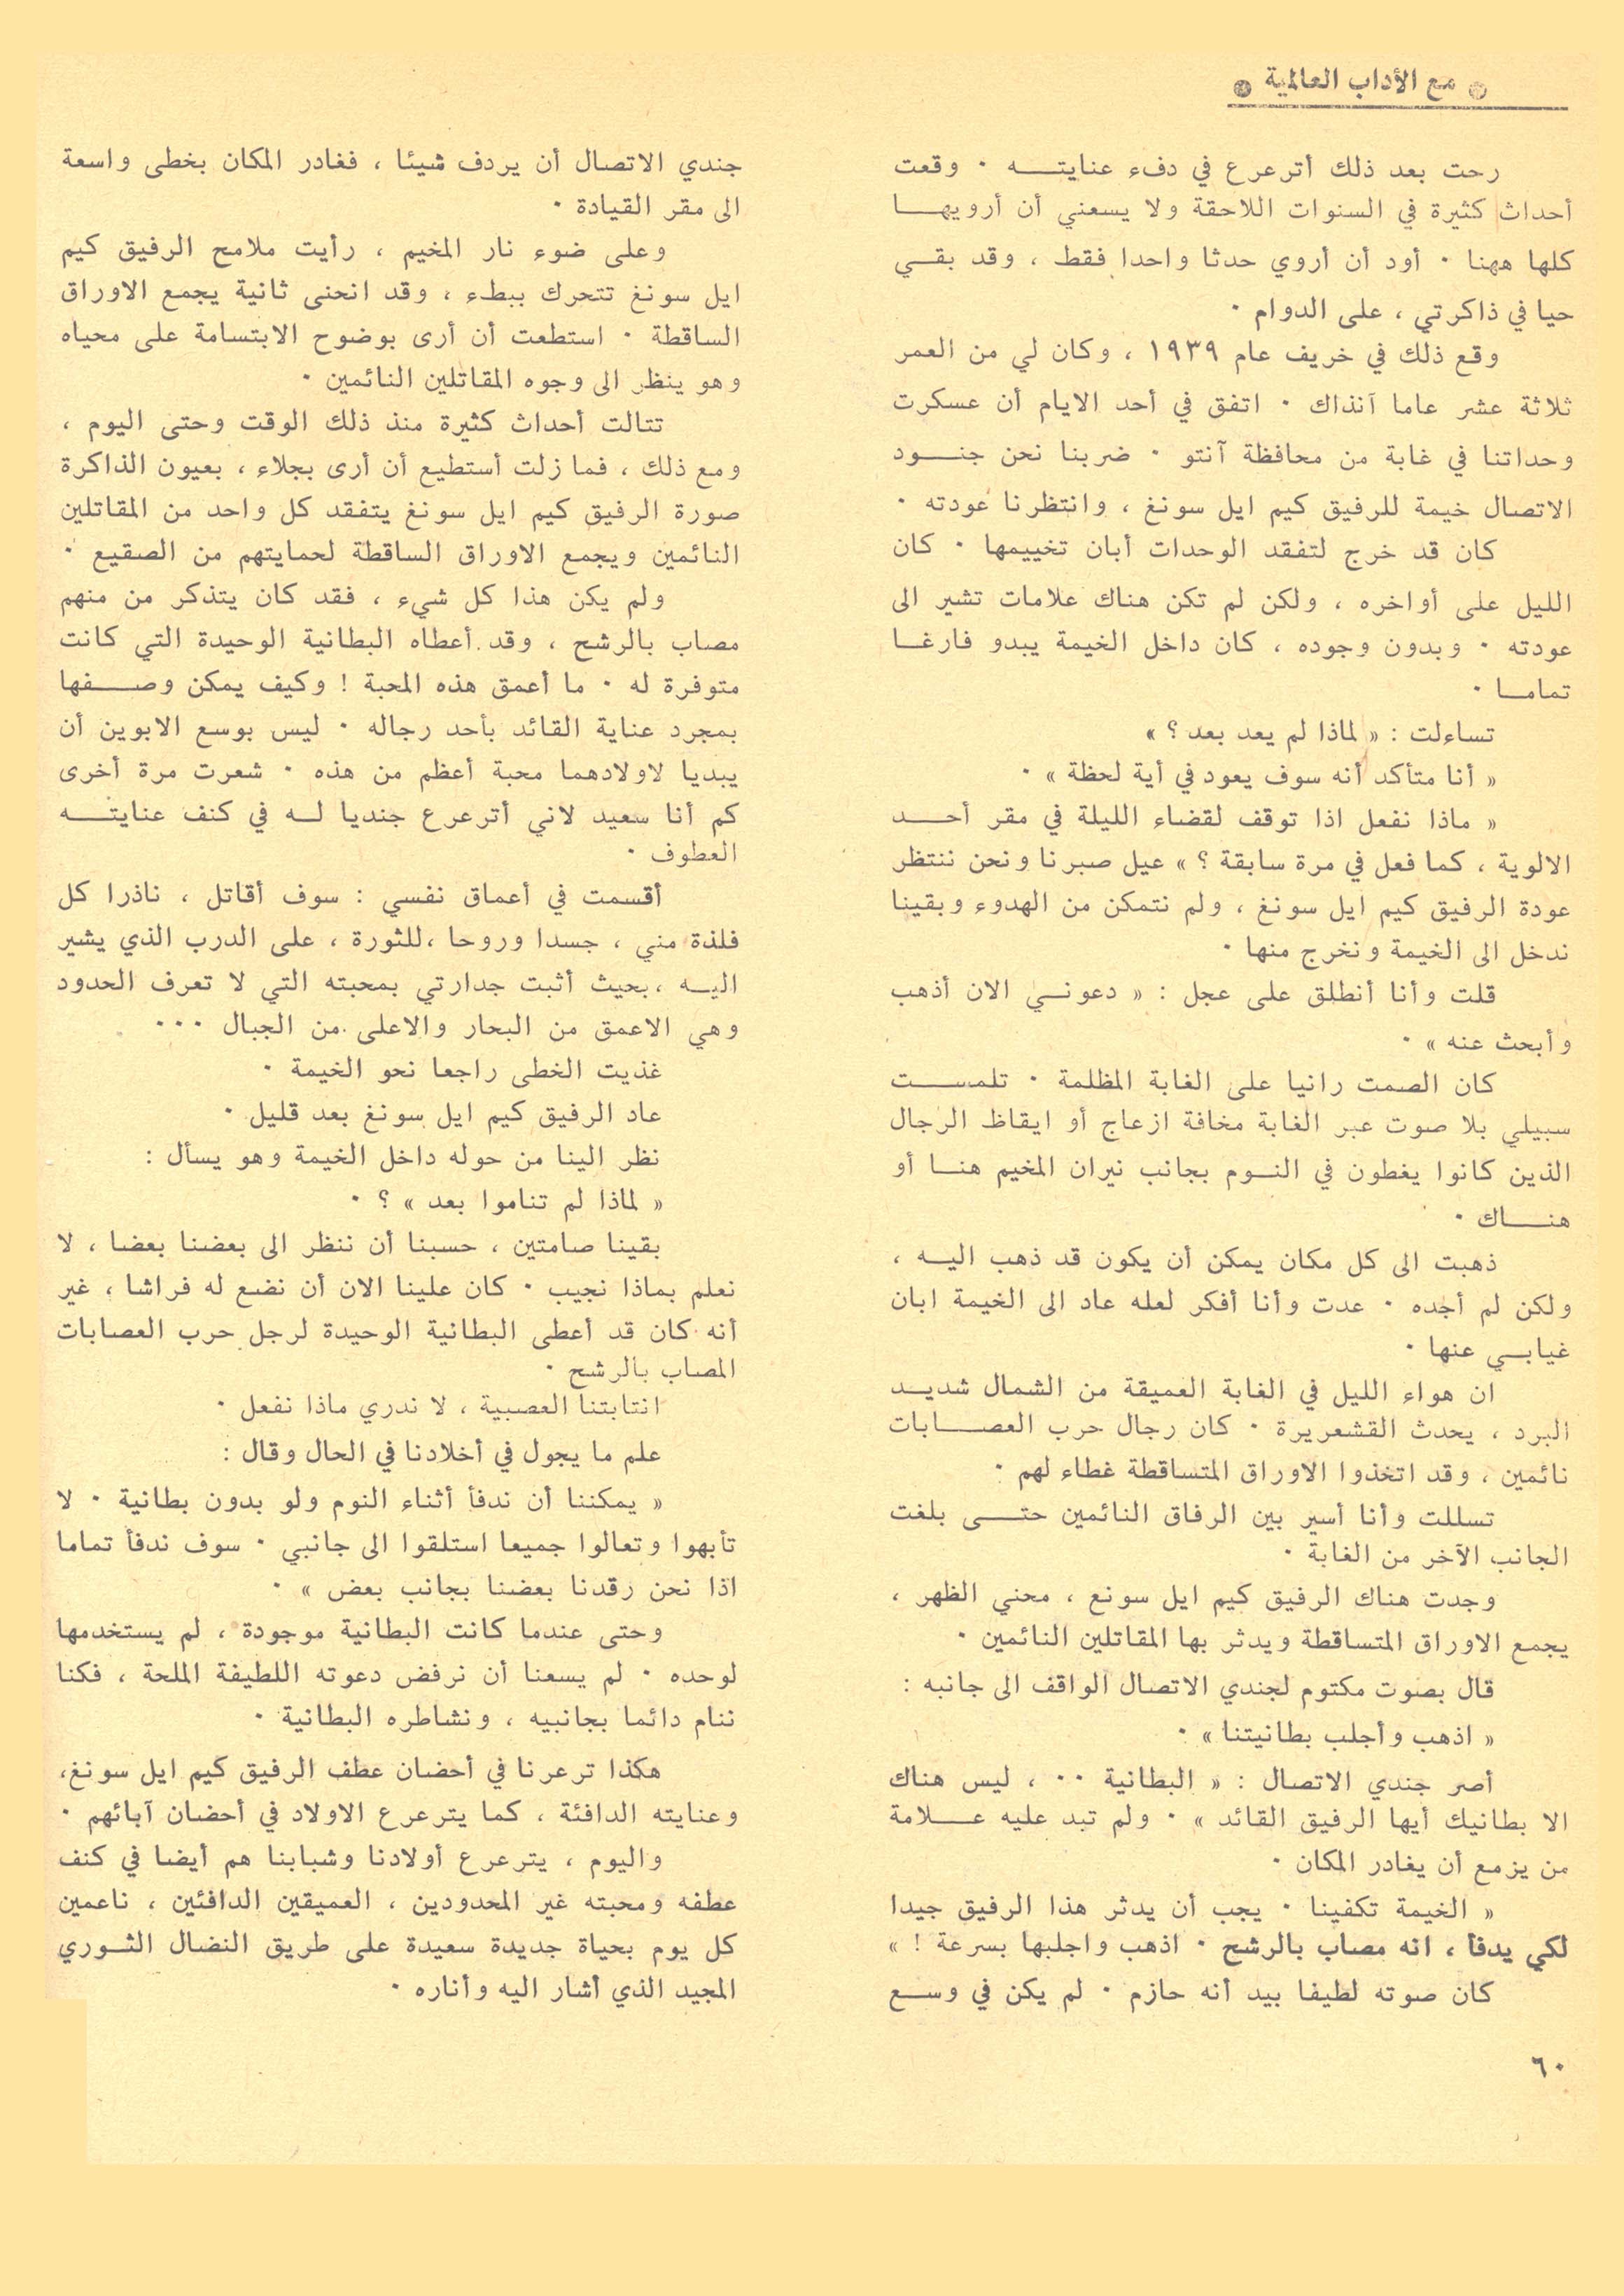 مع الأداب العالمية
رحت بعد ذلك أترعرع في دفء عنايتـــه ٠ وقعت
أحداث كثيرة في السنوات اللاحقة ولا يسعني أن أرويهـــا
كلها ههنا ٠ أود أن أروي حدثا واحدا فقط ، وقد بقـي
حيا في ذاكرتي ، على الدوام ٠
وقع ذلك في خريف عام ١٩٣٩ ، وكان لي من العمر
ثلاثة عشر عاما آنذاك ٠ اتفق في أحد الايام أن عسكرت
وحداتنا في غابة من محافظة آنتو ٠ ضربنا نحن جنـــود
الاتصال خيمة للرفيق كيم ايل سونغ ، وانتظرنا عودته ٠
كان قد خرج لتفقد الوحدات أبان تخييمها ٠ كان
الليل على أواخره ، ولكن لم تكن هناك علامات تشير الى
عودته ٠ وبدون وجوده ، كان داخل الخيمة يبدو فارغـــا
تمامـــا ٠
تساءلت : « لماذا لم يعد بعد ؟ »
« أنا متأكد أنه سوف يعود في أية لحظة » ٠
« ماذا نفعل اذا توقف لقضاء الليلة في مقر أحـــد
الالوية ، كما فعل في مرة سابقة ؟ » عيل صبرنا ونحن ننتظر
عودة الرفيق كيم ايل سونغ ، ولم نتمكن من الهدوء وبقينا
ندخل الى الخيمة ونخرج منها ٠
قلت وأنا أنطلق على عجل : « دعونـــي الان أذهب
وأبحث عنه » ٠
كان الصمت رانيا على الغابة المظلمة ٠ تلمســـت
سبيلي بلا صوت عبر الغابة مخافة ازعاج أو ايقاظ الرجال
الذين كانوا يغطون في النـوم بجانب نيران المخيم هنـا أو
هنـــاك ٠
ذهبت الى كل مكان يمكن أن يكون قد ذهب اليـه ،
ولكن لم أجده ٠ عدت وأنا أفكر لعله عاد الى الخيمة ابان
غيابـي عنها ٠
ان هواء الليل في الغابة العميقة من الشمال شديـد
البرد ، يحدث القشعريرة ٠ كان رجال حرب العصـــابات
نائمين ، وقد اتخذوا الاوراق المتساقطة غطاء لهم ٠
تسللت وأنا أسير بين الرفاق النائمين حتـــى بلغت
الجانب الآخر من الغابة ٠
وجدت هناك الرفيق كيم ايل سونع ، محني الظهر ،
يجمع الاوراق المتساقطة ويدثر بها المقاتلين النائمين ٠
قال بصوت مكتوم لجندي الاتصال الواقف الى جانبه :
« اذهب وأجلب بطانيتنا » ٠
أصر جندي الاتصال : « البطانية ٠٠ ، ليس هناك
الا بطانيك أيها الرفيق القائد » ٠ ولم تبد عليه عـــلامة
من يزمع أن يغادر المكان ٠
« الخيمة تكفينا ٠ يجب أن يدثر هذا الرفيق جيدا
لكي يدفأ ، انه مصاب بالرشح ٠ اذهب واجلبها بسرعة ! »
كان صوته لطيفا بيد أنه حازم ٠ لم يكن في وســع
٦٠
جندي الاتصال أن يردف شيئا ، فغادر المكان بخطى واسعة
الى مقر القيادة ٠
وعلى ضوء نار المخيم ، رأيت ملامح الرفيق كيم
ايل سونغ تتحرك ببطء ، وقد انحنى ثانية يجمع الاوراق
الساقطة ٠ استطعت أن أرى بوضوح الابتسامة على محياه
وهو ينظر الى وجوه المقاتلين النائمين ٠
تتالت أحداث كثيرة منذ ذلك الوقت وحتى اليوم ،
ومع ذلك ، فما زلت أستطيع أن أرى بجلاء ، بعيون الذاكرة
صورة الرفيق كيم ايل سونغ يتفقد كل واحد من المقاتلين
النائمين ويجمع الاوراق الساقطة لحمايتهم من الصقيع ٠
ولم يكن هذا كل شيء ، فقد كان يتذكر من منهم
مصاب بالرشح ، وقد أعطاه البطانية الوحيدة التي كانت
متوفرة له ٠ ما أعمق هذه المحبة ! وكيف يمكن وصـــفها
بمجرد عناية القائد بأحد رجاله ٠ ليس بوسع الابوين أن
يبديا لاولادهما محبة أعظم من هذه ٠ شعرت مرة أخرى
كم أنا سعيد لاني أترعرع جنديا لـه في كنف عنايتـــه
العطوف ٠
أقسمت في أعماق نفسي : سوف أقاتل ، ناذرا كل
فلذة مني ، جسدا وروحا ،للثورة ، على الدرب الذي يشير
اليـه ، بحيث أثبت جدارتي بمحبته التي لا تعرف الحدود
وهي الاعمق من البحار والاعلى من الجبال ٠٠٠
غذيت الخطى راجعا نحو الخيمة ٠
عاد الرفيق كيم ايل سونغ بعد قليل ٠
نظر الينا من حوله داخل الخيمة وهو يسأل :
« لماذا لم تناموا بعد » ؟ ٠
بقينا صامتين ، حسبنا أن ننظر الى بعضنا بعضا ، لا
نعلم بماذا نجيب ٠ كان علينا الان أن نضع له فراشا ، غير
أنه كان قد أعطى البطانية الوحيدة لرجل حرب العصابات
المصاب بالرشح ٠
انتابتنا العصبية ، لا ندري ماذا نفعل ٠
علم ما يجول في أخلادنا في الحال وقال :
« يمكننا أن ندفأ أثناء النوم ولو بدون بطانية ٠ لا
تأبهوا وتعالوا جميعا استلقوا الى جانبي ٠ سوف ندفأ تماما
اذا نحن رقدنا بعضنا بجانب بعض » ٠
وحتى عندما كانت البطانية موجودة ، لم يستخدمها
لوحده ٠ لم يسعنا أن نرفض دعوته اللطيفة الملحة ، فكنا
ننام دائما بجانبيه ، ونشاطره البطانية ٠
هكذا ترعرنا في أحضان عطف الرفيق كيم ايل سونغ،
وعنايته الدافئة ، كما يترعرع الاولاد في أحضان آبائهم ٠
واليوم ، يترعرع أولادنا وشبابنا هم أيضا في كنف
عطفه ومحبته غير المحدودين ، العميقين الدافئين ، ناعمين
كل يوم بحياة جديدة سعيدة على طريق النضال الثـوري
المجيد الذي أشار اليه وأناره ٠